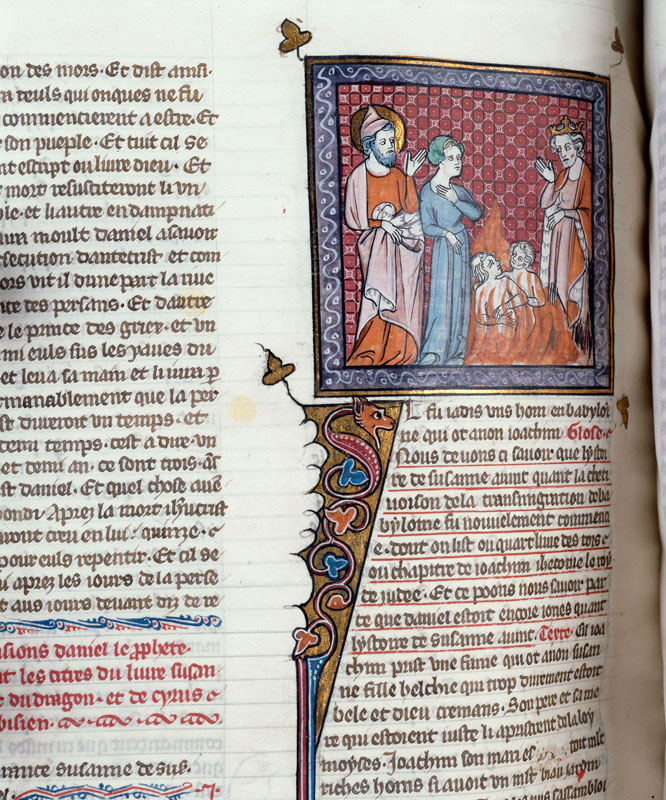 on des mors. Et dist ainsi.
n teuls qui onques ne fu
commencierent a estre. Et
son pueple. Et tuit cil se
nt escript ou liure dieu. Et
mort resusciteront li vn
ble. et li autre en dampnati
ura moult daniel a sauoir
secution dantecrist et com
ors vit il dune part la riue
nce des persans. Et dautre
e le prince des griex. et vn
mi euls sus les yaues du
et leua sa main et iura p
manablement que la per
st dureroit vn temps. et
demi temps. cest a dire. vn
et demi an. ce sont trois. ans
st daniel. Et quel chose auen
pondi. Apres la mort ihucrist
uront creu en lui. quinze. c
pour euls repentir. Et cil se
i apres les iours de la perse
t aus iours deuant diz de re
sions daniel le pphete.
t les titres du liure susan
t du dragon. et de cyrus e
bisien.
mence susanne de sus.
el.
L fu iadis vns hom en babyloi
ne qui ot a non ioachim. Glose. e
Nous deuons ci sauoir que lystoi
re de susanne auint quant la cheti
uoison de la transmigration de ba
byloine fu nouuelement commenc
e. dont on list ou quart liure des rois e
ou chapitre de ioachim
de iudee. Et ce poons nous sauoir par
ce que daniel estoit encore iones quant
lystoire de susanne auint. Texte. Cil ioa
chim prist vne fame qui ot a non susan
ne fille helchie qui trop durement estoit
bele et dieu cremans. Son pere et sa me
re qui estoient iuste li apristrent de la loy
moyses. Ioachim son mari es tout mlt
riches homs si auoit vn mlt biau iardin